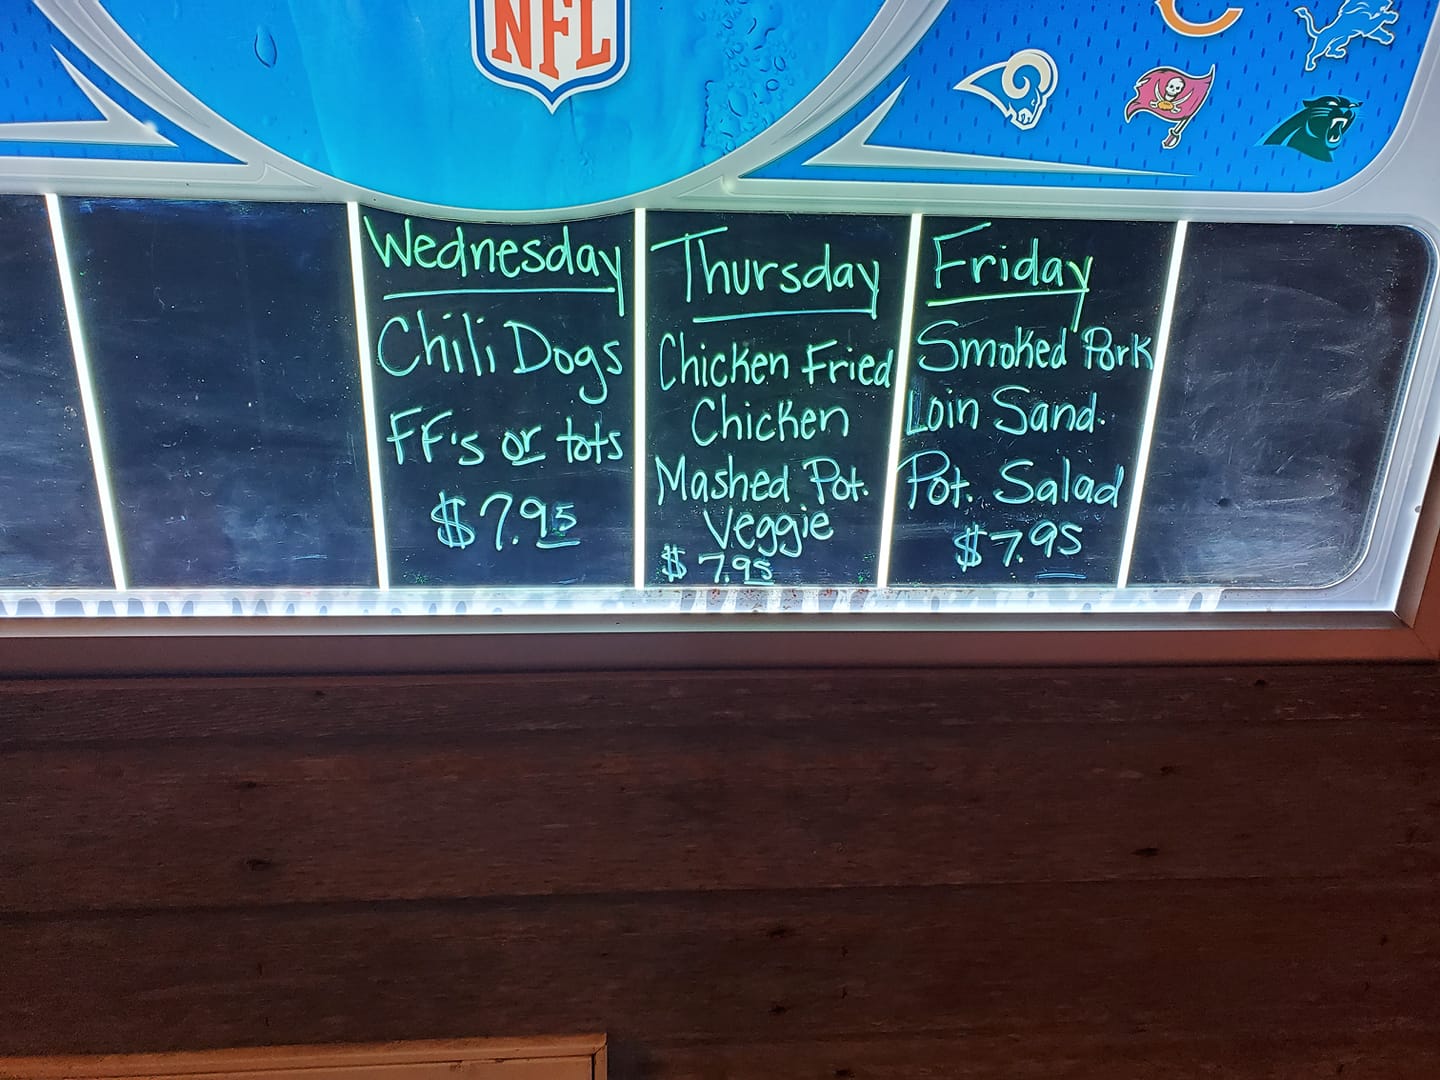 NFL
Wednesday
Chili Dogs
FF's or tots
$7.95
Thursday
Chicken Fried
Chicken
Mashed Pot.
Veggie
$7.95
Friday
Smoked Pork
Loin Sand.
Pot. Salad
$7.95